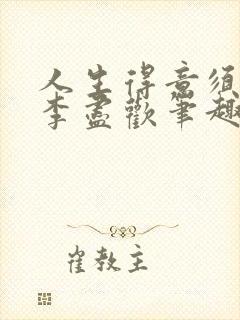 人生得意須
李盡歡筆趣
崔教主